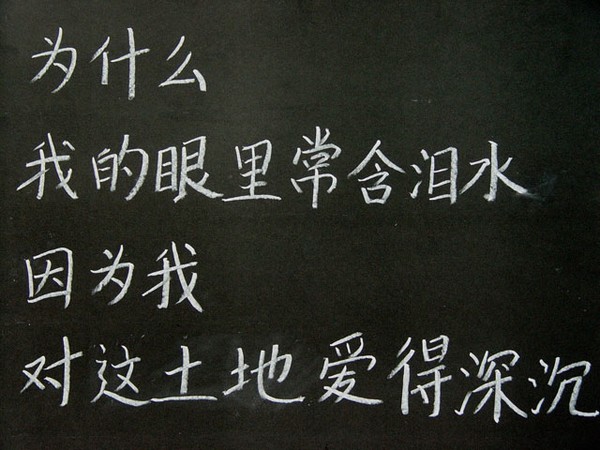 为什么
我的眼里常含泪水
因为我
对这土地爱得深沉